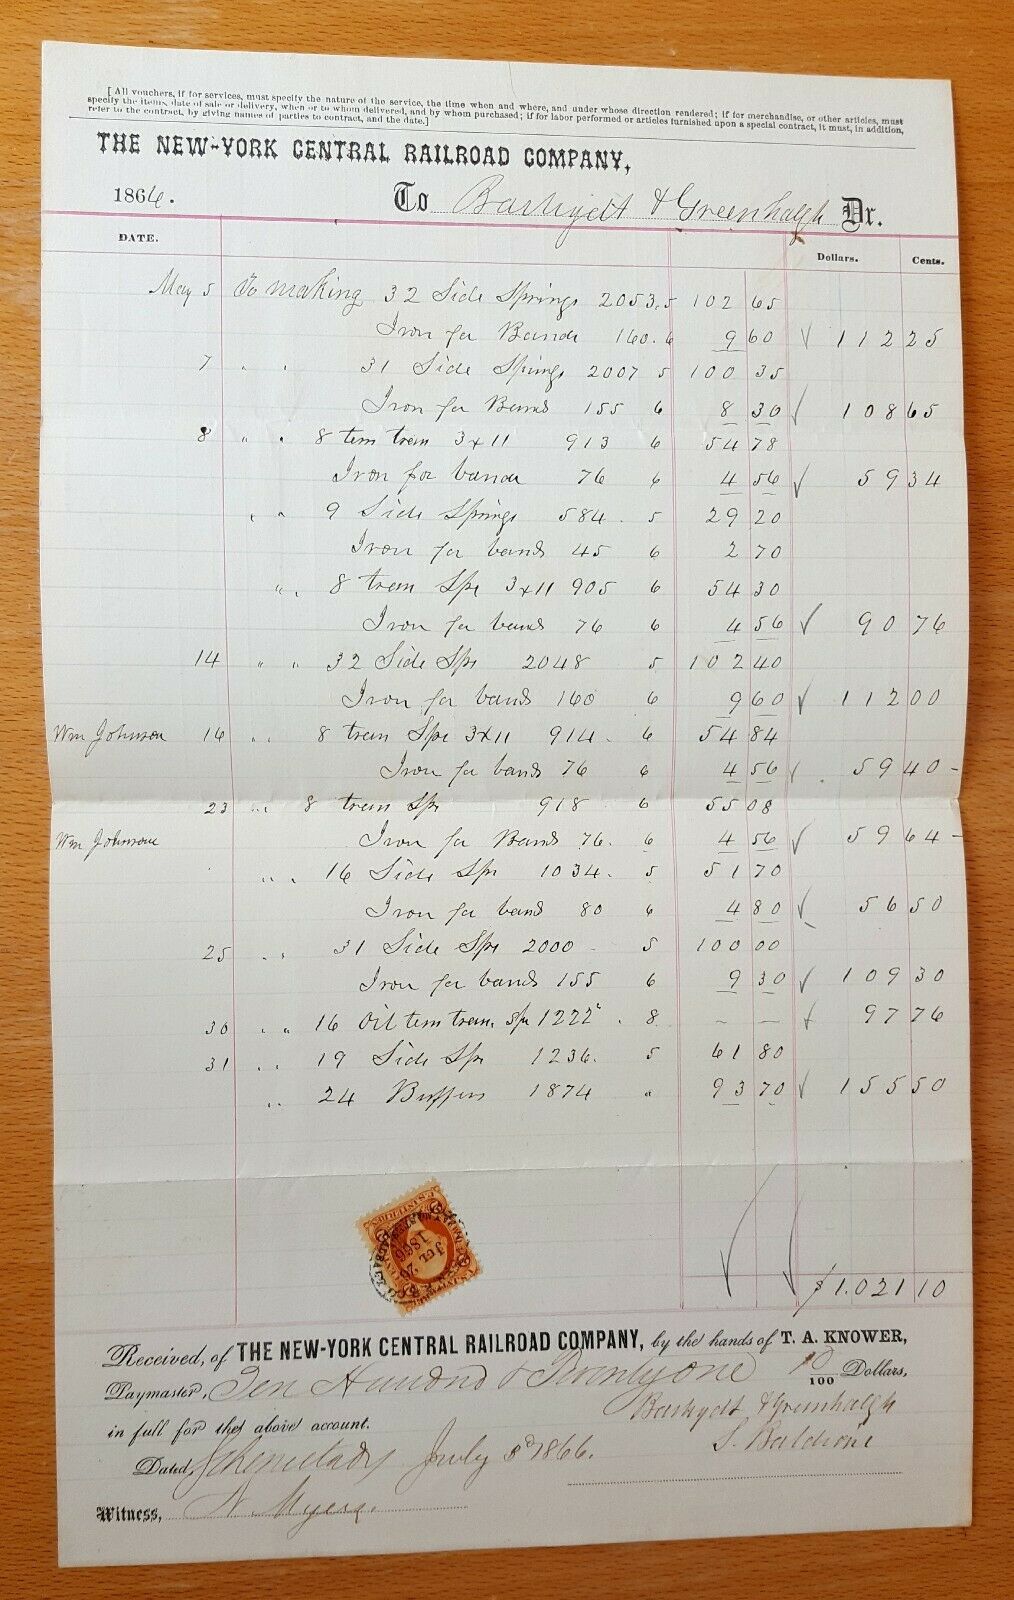 [All vouchers, if for services, must specify the nature of the service, the time when and where, and under whose direction rendered; if for merchandise, or other articles, must
specify the items, date of sale or delivery, when or to whom delivered, and by whom purchased; if for labor performed or articles furnished upon a special contract, it must, in addition,
refer to the contract, by giving names of parties to contract, and the date.]
THE NEW-YORK CENTRAL RAILROAD COMPANY,
1866. To Barhydt & Greenhalgh Dr.
DATE. Dollars. Cents.
May 5 To making 32 Side Springs 2053.5 102 65
Iron for Bands 160.6 9 60 √ 112 25
7 " " 31 Side Springs 2007 5 100 35
Iron for Bands 155 6 8 30 √ 108 65
8 " " 8 tem tram 3x11 913 6 54 78
Iron for bands 76 6 4 56 √ 59 34
" " 9 Side Springs 584. 5 29 20
Iron for bands 45 6 2 70
" . 8 tram Spr 3x11 905 6 54 30
Iron for bands 76 6 4 56 √ 90 76
14 " " 32 Side Spr 2048 5 102 40
Iron for bands 160 6 9 60 √ 112 00
Wm Johnson 16 " . 8 tram Spr 3x11 914. 6 54 84
Iron for bands 76 6 4 56 √ 59 40 -
23 " . 8 tram Spr 918 6 55 08
Wm Johnson Iron for Bands 76. 6 4 56 √ 59 64 -
" " 16 Side Spr 1034. 5 51 70
Iron for band 80 6 4 80 √ 56 50
25 " " 31 Side Spr 2000 5 100 00
Iron for bands 155 6 9 30 √ 109 30
30 " " 16 Oil tem tram. Spr 1222 . 8 - - √ 97 76
31 " " 19 Side Spr 1236. 5 61 80
" 24 Buffers 1874 " 93 70 √ 155 50
JUL 26
1866
√ √ $1.021 10
Received, of THE NEW-YORK CENTRAL RAILROAD COMPANY, by the hands of T. A. KNOWER,
Paymaster, Ten Hundred & Twenty one 10/100 Dollars,
in full for the above account. Barhydt & Greenhalgh
Dated, Schenectady July 1866.
Witness, N. Myers.